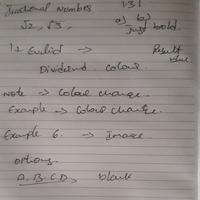 Irrational Numbers
1 3 1
√2, √3,
a) b)
Just bold.
1.2 Euclid → Result blue
Dividend colour.
Note → Colour change.
Example → Colour change.
Example 6. → Image
options
A. B. C. D. black